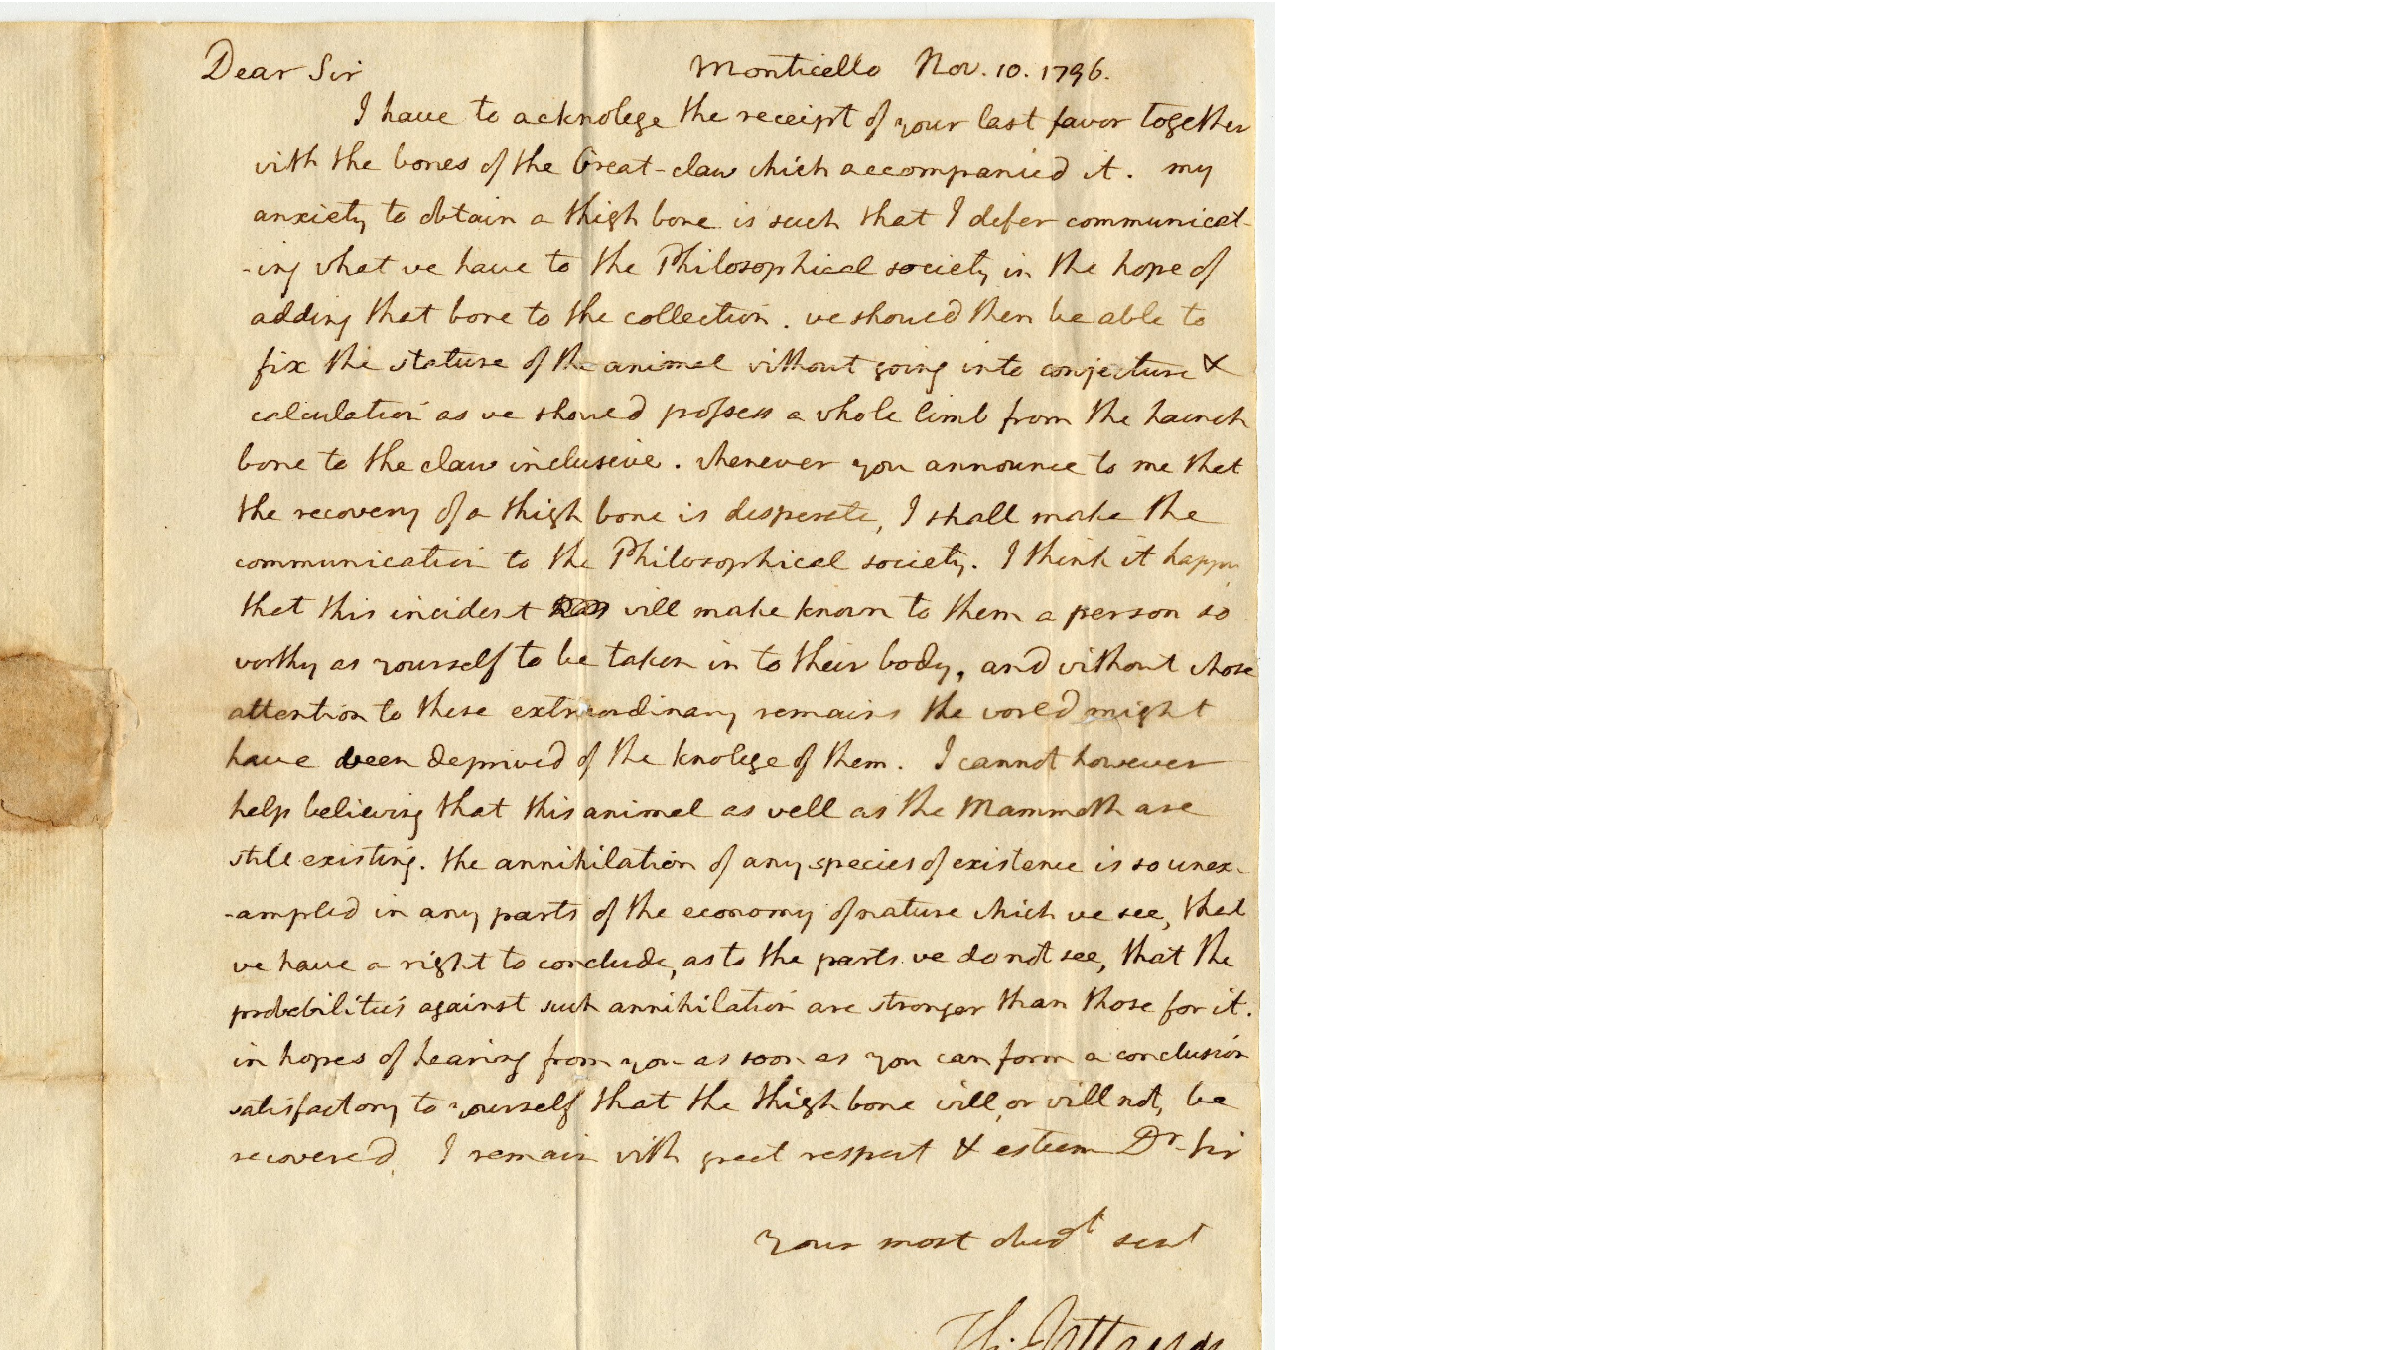 Dear Sir Monticello Nov. 10. 1796.
I have to acknolege the receipt of your last favor together
with the bones of the Great-claw which accompanied it. my
anxiety to obtain a thigh bone is such that I defer communicat-
-ing what we have to the Philosophical society in the hope of
adding that bone to the collection. we should then be able to
fix the stature of the animal without going into conjecture &
calculation as we should possess a whole limb from the haunch
bone to the claw inclusive. whenever you announce to me that
the recovery of a thigh bone is desperate, I shall make the
communication to the Philosophical society. I think it happy
that this incident will make known to them a person so
worthy as yourself to be taken in to their body, and without whose
attention to these extraordinary remains the world might
have been deprived of the knolege of them. I cannot however
help believing that this animal as well as the Mammoth are
still existing. the annihilation of any species of existence is so unex-
-ampled in any parts of the economy of nature which we see, that
we have a right to conclude, as to the parts we do not see, that the
probabilities against such annihilation are stronger than those for it.
in hopes of hearing from you as soon as you can form a conclusion
satisfactory to yourself that the thigh bone will, or will not, be
recovered, I remain with great respect & esteem Dr. Sir
Your most obedt servt
Th. Jefferson